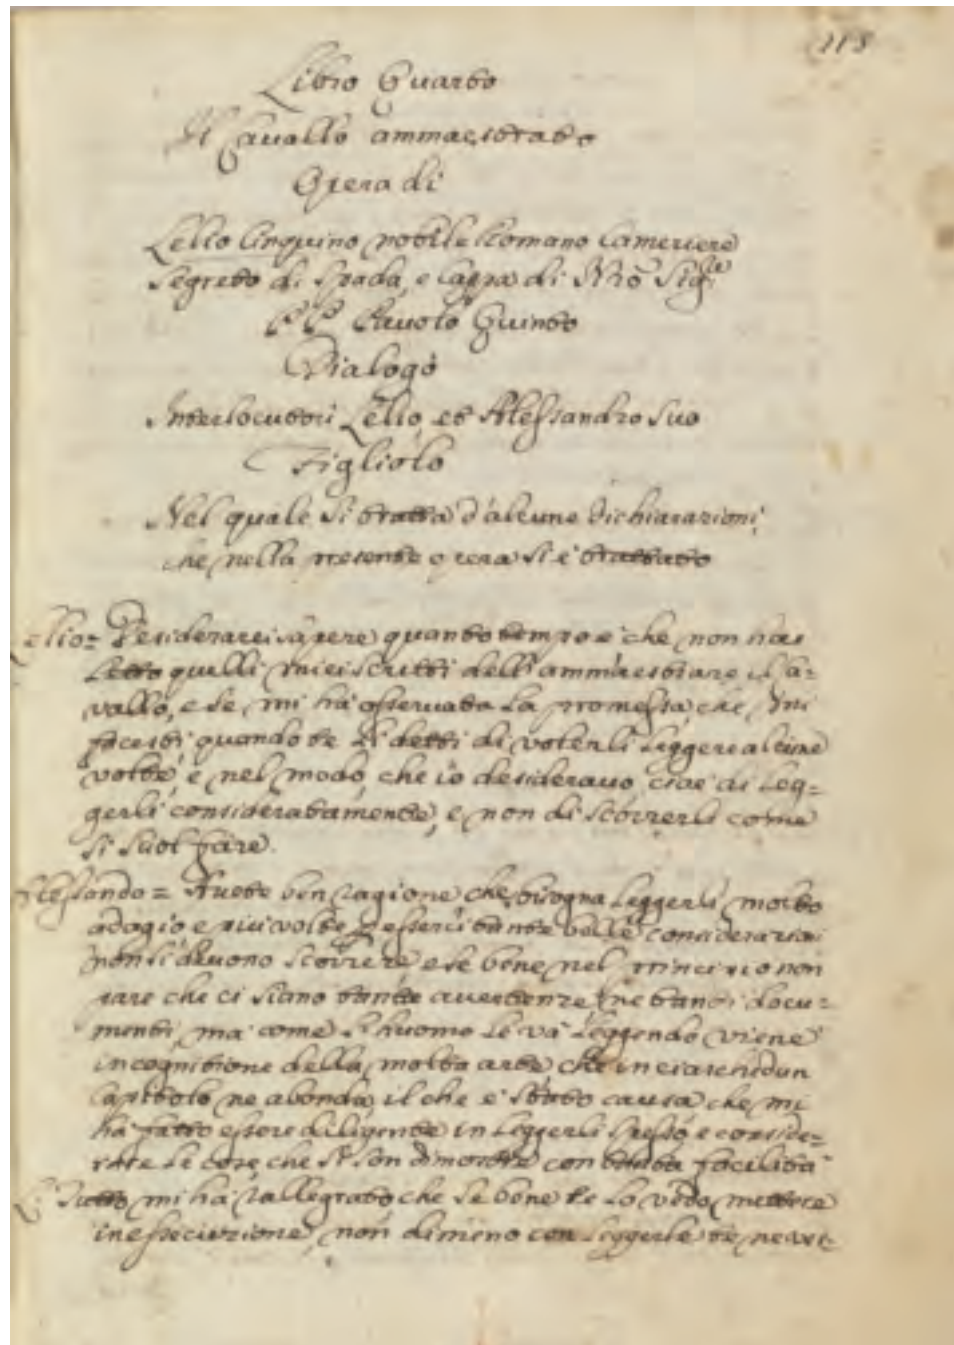 118
Libro Quarto
Il Cavallo ammaestrato
Opera di
Lelio Cinquino nobile Romano Cameriere
segreto di spada, e cappa di Nrõ Sigre
PP Pauolo Quinto
Dialogo
Interlocutori Lelio, et Alessandro suo
Figliolo
Nel quale si tratta d'alcune dichiarazioni,
che nella presente opera si è trattato
Lelio= Desiderarei sapere quanto tempo è che non hai
letto quelli miei scritti dell'ammaestrare il Ca-
vallo, e se mi hà osservata la promessa, che mi
facesti quando te li detti di volerli leggere alcune
volte, e nel modo, che io desideravo, cioè di leg-
gerli consideratamente, e non di scorrerli come
si suol fare.
Alessandro= Avete ben ragione che bisogna leggerli molto
adagio e più volte esserci tante belle considerazioni
non si devono scorrere e se bene nel principio non
pare che ci siano tante avertenze ne tanti docu-
menti, ma come l'huomo le và leggendo viene
in cognitione della molta arte che in ciaschedun
Capitolo ne abonda, il che è stato causa che mi
hà fatto essere diligente in leggerli spesso, e conside-
rare le cose, che si son dimostre con tanta facilità
L: Tutto mi hà rallegrato che se bene te lo vedo mettere
in essecuzione, non dimeno con leggerle te ne